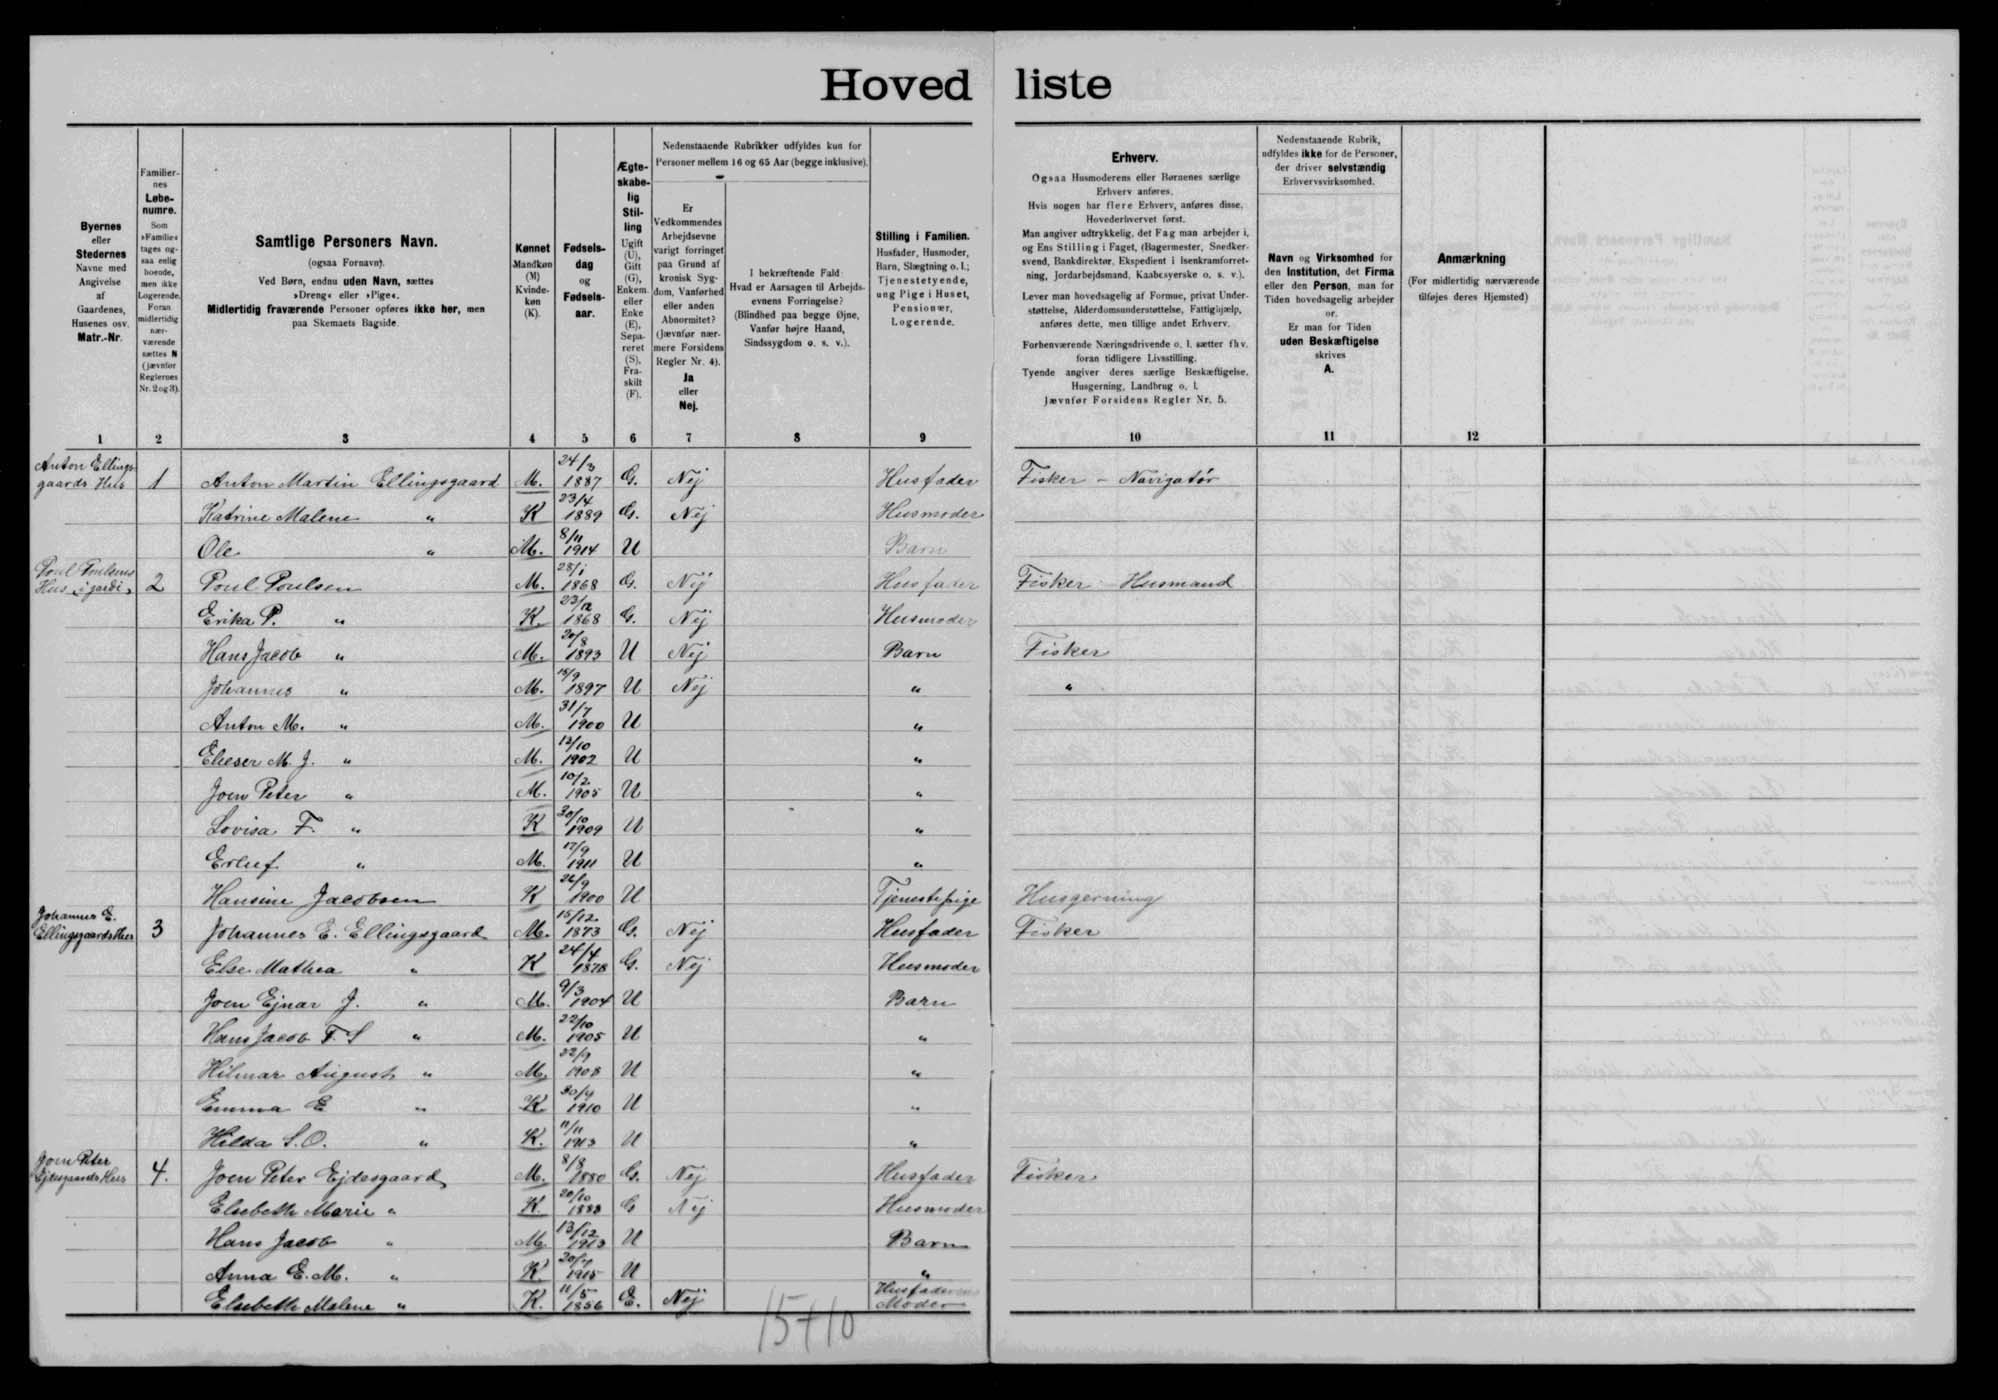 Hoved liste
Byernes
eller
Stedernes
Navne med
Angivelse
af
Gaardenes,
Husenes osv.
Matr.-Nr.
1
Familier-
nes
Løbe-
numre.
Som
»Familie«
tages og-
saa enlig
boende,
men ikke
Logerende.
Foran
midlertidig
nær-
værende
sættes N
(jævnfør
Reglernes
Nr. 2 og 3).
2
Samtlige Personers Navn.
(ogsaa Fornavn).
Ved Børn, endnu uden Navn, sættes
»Dreng« eller »Pige«.
Midlertidig fraværende Personer opføres ikke her, men
paa Skemaets Bagside.
3
Kønnet
Mandkøn
(M)
Kvinde-
køn
(K).
4
Fødsels-
dag
og
Fødsels-
aar.
5
Ægte-
skabe-
lig
Stil-
ling
Ugift
(U),
Gift
(G),
Enkem.
eller
Enke
(E),
Sepa-
reret
(S),
Fra-
skilt
(F).
6
Nedenstaaende Rubrikker udfyldes kun for
Personer mellem 16 og 65 Aar (begge inklusive).
Er
Vedkommendes
Arbejdsevne
varigt forringet
paa Grund af
kronisk Syg-
dom, Vanførhed
eller anden
Abnormitet?
(Jævnfør nær-
mere Forsidens
Regler Nr. 4).
Ja
eller
Nej.
7
I bekræftende Fald:
Hvad er Aarsagen til Arbejds-
evnens Forringelse?
(Blindhed paa begge Øjne,
Vanfør højre Haand,
Sindssygdom o. s. v.).
8
Stilling i Familien.
Husfader, Husmoder,
Barn, Slægtning o. l.;
Tjenestetyende,
ung Pige i Huset,
Pensionær,
Logerende.
9
Erhverv.
Ogsaa Husmoderens eller Børnenes særlige
Erhverv anføres.
Hvis nogen har flere Erhverv, anføres disse,
Hovederhvervet først.
Man angiver udtrykkelig, det Fag man arbejder i,
og Ens Stilling i Faget, (Bagermester, Snedker-
svend, Bankdirektør, Ekspedient i Isenkramforret-
ning, Jordarbejdsmand, Kaabesyerske o. s. v.).
Lever man hovedsagelig af Formue, privat Under-
støttelse, Alderdomsunderstøttelse, Fattighjælp,
anføres dette, men tillige andet Erhverv.
Forhenværende Næringsdrivende o. l. sætter fhv.
foran tidligere Livsstilling.
Tyende angiver deres særlige Beskæftigelse,
Husgerning, Landbrug o. l.
Jævnfør Forsidens Regler Nr. 5.
10
Nedenstaaende Rubrik,
udfyldes ikke for de Personer,
der driver selvstændig
Erhvervsvirksomhed.
Navn og Virksomhed for
den Institution, det Firma
eller den Person, man for
Tiden hovedsagelig arbejder
for.
Er man for Tiden
uden Beskæftigelse
skrives
A.
11
Anmærkning
(For midlertidig nærværende
tilføjes deres Hjemsted)
12
Anton Ellings-
gaards Hus 1 Anton Martin Ellingsgaard M. 24/3 1887 G. Nej Husfader Fisker - Navigatør
Katrine Malene " K 23/4 1889 G. Nej Husmoder
Ole " M. 8/11 1914 U Barn
Poul Poulsens
Hus "i gardi" 2 Poul Poulsen M. 28/1 1868 G. Nej Husfader Fisker - Husmand
Erika P. " K. 23/12 1868 G. Nej Husmoder
Hans Jacob " M. 20/8 1893 U Nej Barn Fisker
Johannes " M. 15/9 1897 U Nej " "
Anton M. " M. 31/7 1900 U "
Elieser M. J. " M. 13/10 1902 U "
Joen Peter " M. 10/2 1905 U "
Lovisa F. " K 30/10 1909 U "
Erluf " M. 17/9 1911 U "
Hansine Jacobsen K 26/9 1900 U Tjenestepige Husgerning
Johannes E.
Ellingsgaards Hus 3 Johannes E. Ellingsgaard M. 15/12 1873 G. Nej Husfader Fisker
Else Mathea " K 24/4 1878 G. Nej Husmoder
Joen Ejnar J. " M. 9/3 1904 U Barn
Hans Jacob F. S " M. 22/10 1905 U "
Hilmar August " M. 22/9 1908 U "
Emma E " K. 1910 U "
Hilda S. O. " K. 11/11 1913 U "
Joen Peter
Ejdesgaards Hus 4. Joen Peter Ejdesgaard M. 8/8 1880 G. Nej Husfader Fisker
Elsebeth Marie " K. 20/10 1883 G Nej Husmoder
Hans Jacob " M. 13/12 1913 U Barn
Anna E. M. " K. 1915 U "
Elsebeth Malene " K. 11/5 1856 E. Nej Husfaderens
Moder
15+10